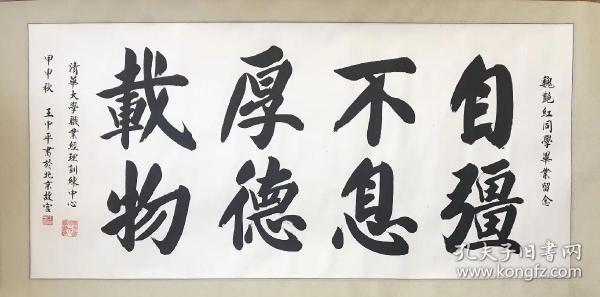 魏艷紅同學畢業留念
自彊
不息
厚德
載物
清華大學職業經理訓練中心
甲申秋 王中平書於北京故宮
孔夫子旧书网
www.kongfz.com